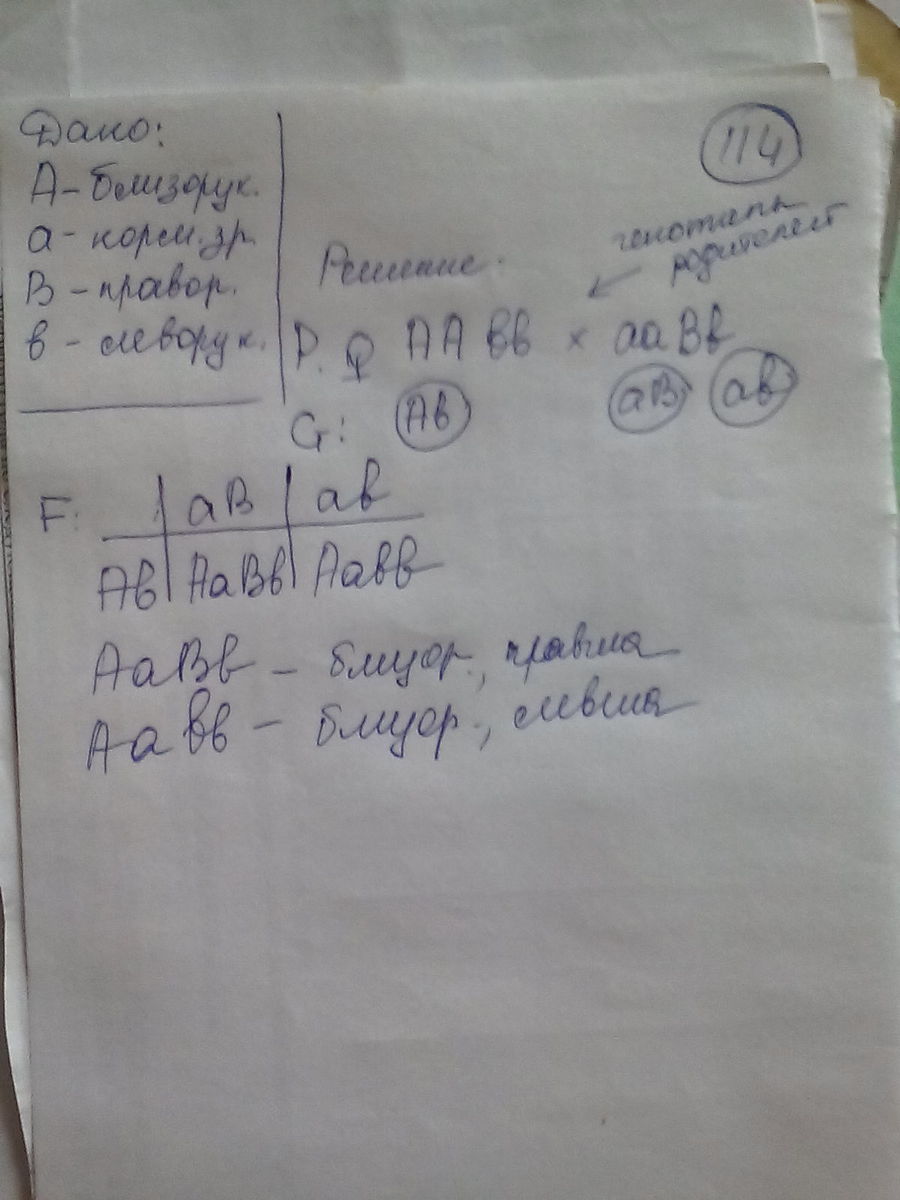 Дано:
А - близорук.
а - норм. зр.
В - правор.
в - леворук.
114
генотипы
родителей
Решение.
Р. ♀ АА вв × ааВв
G: Ав аВ ав
F: аВ ав
Ав АаВв Аавв
АаВв - близор., правша
Аа вв - близор., левша